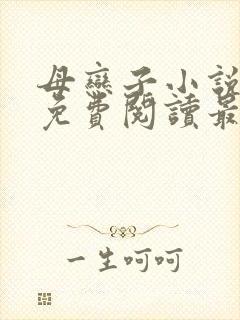 母戀子小說
免費閱讀最
一生呵呵